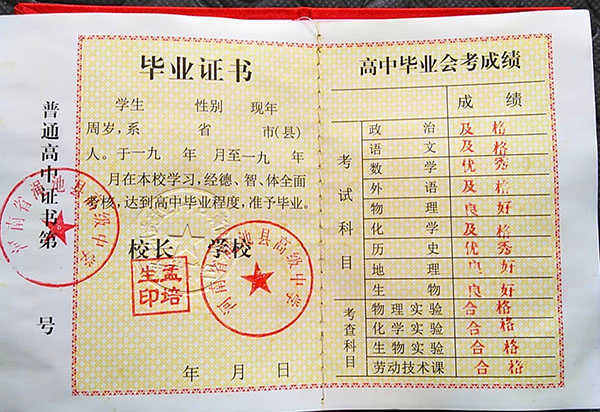 普通高中证书第 号
毕业证书
学生 性别 现年
周岁,系 省 市(县)
人。于一九 年 月至一九 年
月在本校学习,经德、智、体全面
考核,达到高中毕业程度,准予毕业。
校长 学校
孟培生印
河南省渑池县高级中学
河南省渑池县高级中学
年 月 日
高中毕业会考成绩
成绩
考试科目
政治 及格
语文 及格
数学 优秀
外语 及格
物理 良好
化学 及格
历史 优秀
地理 良好
生物 良好
考查科目
物理实验 合格
化学实验 合格
生物实验 合格
劳动技术课 合格